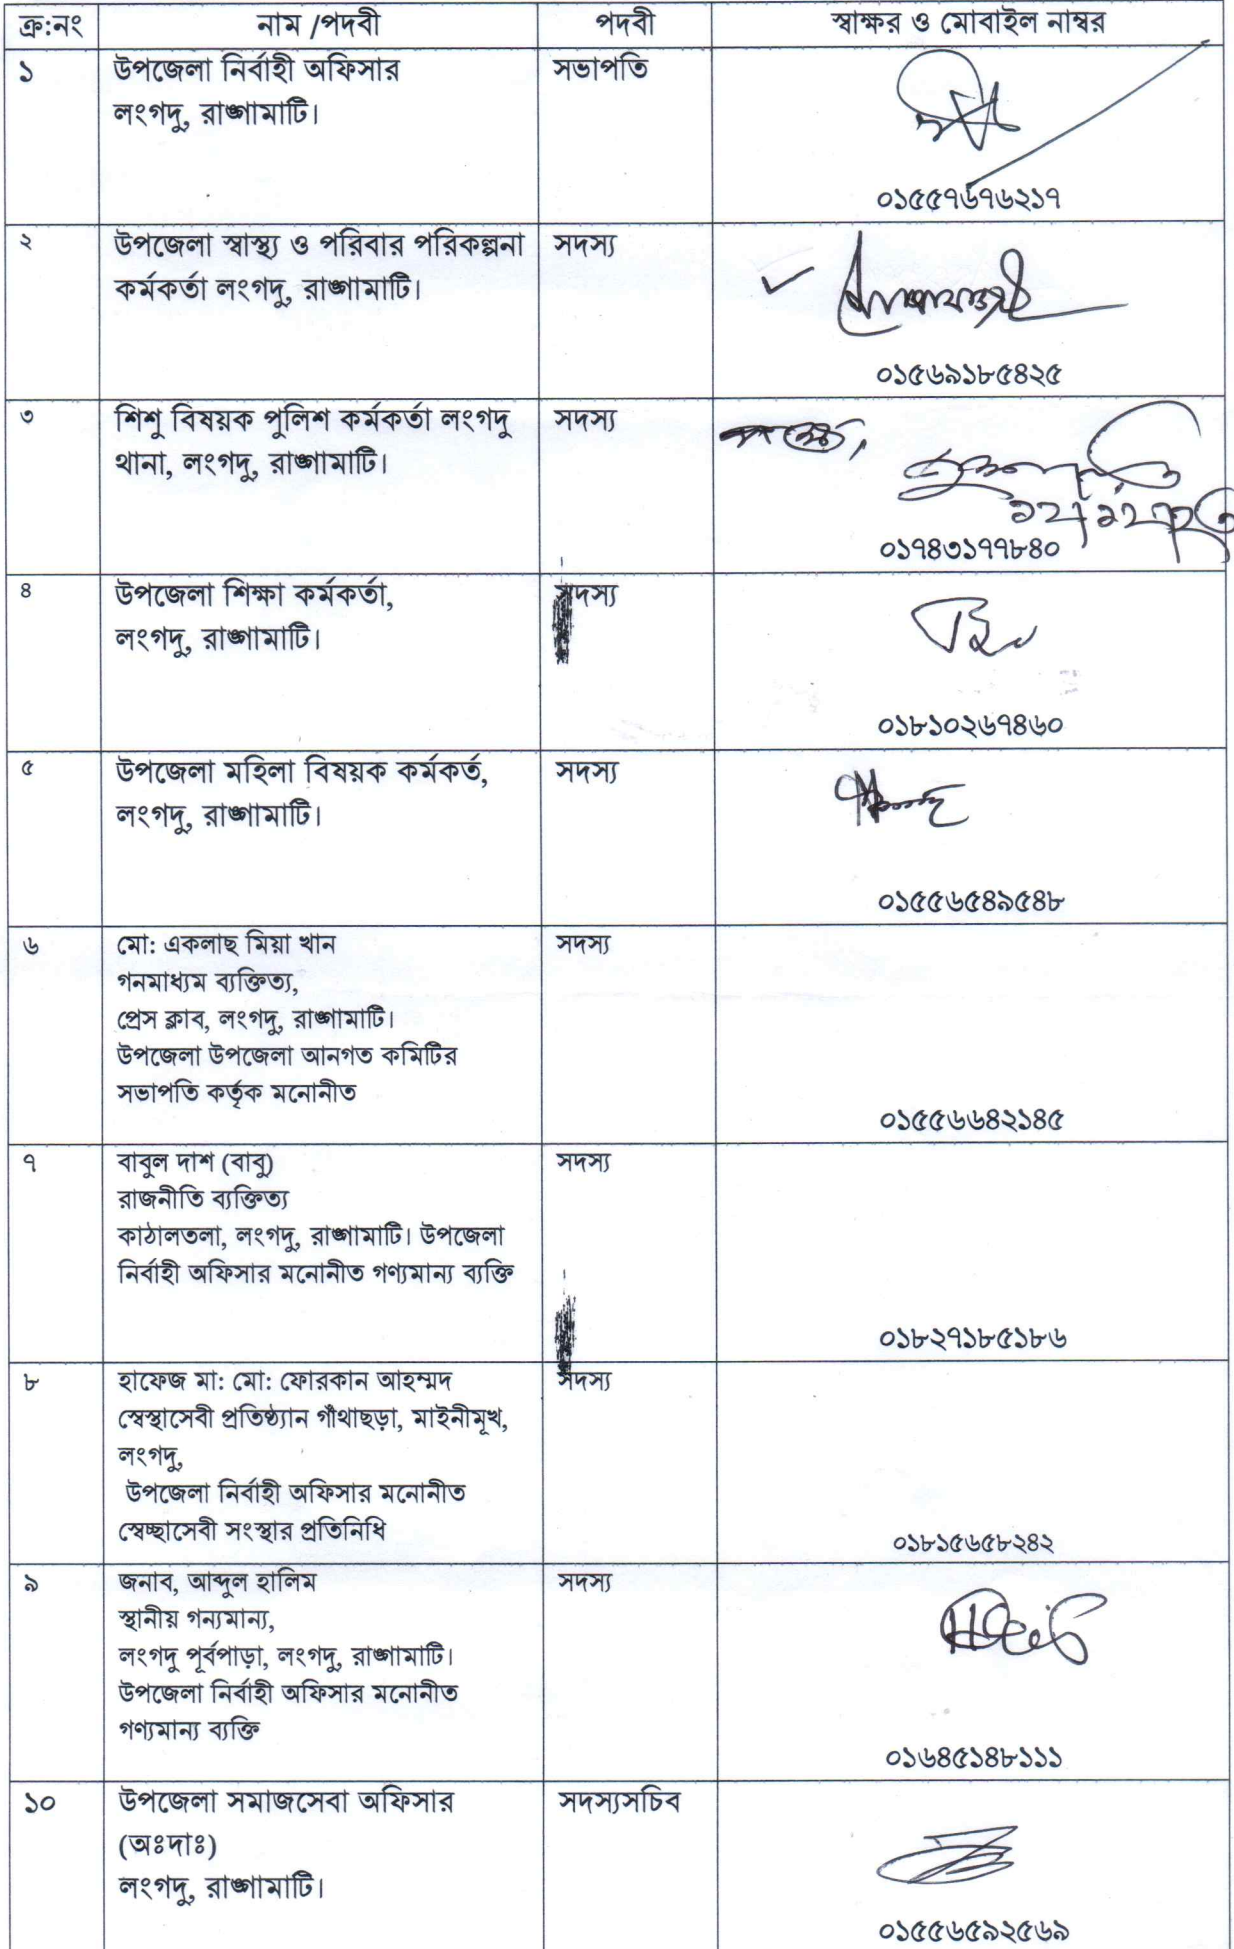 ক্র:নং নাম /পদবী পদবী স্বাক্ষর ও মোবাইল নাম্বর
১ উপজেলা নির্বাহী অফিসার সভাপতি
লংগদু, রাঙ্গামাটি।
০১৫৫৭৬৭৬২১৭
২ উপজেলা স্বাস্থ্য ও পরিবার পরিকল্পনা সদস্য
কর্মকর্তা লংগদু, রাঙ্গামাটি।
০১৫৬৯১৮৫৪২৫
৩ শিশু বিষয়ক পুলিশ কর্মকর্তা লংগদু সদস্য
থানা, লংগদু, রাঙ্গামাটি।
০১৭৪৩১৭৭৮৪০
৪ উপজেলা শিক্ষা কর্মকর্তা, সদস্য
লংগদু, রাঙ্গামাটি।
০১৮১০২৬৭৪৬০
৫ উপজেলা মহিলা বিষয়ক কর্মকর্ত, সদস্য
লংগদু, রাঙ্গামাটি।
০১৫৫৬৫৪৯৫৪৮
৬ মো: একলাছ মিয়া খান সদস্য
গনমাধ্যম ব্যক্তিত্য,
প্রেস ক্লাব, লংগদু, রাঙ্গামাটি।
উপজেলা উপজেলা আনগত কমিটির
সভাপতি কর্তৃক মনোনীত
০১৫৫৬৬৪২১৪৫
৭ বাবুল দাশ (বাবু) সদস্য
রাজনীতি ব্যক্তিত্য
কাঠালতলা, লংগদু, রাঙ্গামাটি। উপজেলা
নির্বাহী অফিসার মনোনীত গণ্যমান্য ব্যক্তি
০১৮২৭১৮৫১৮৬
৮ হাফেজ মা: মো: ফোরকান আহম্মদ সদস্য
স্বেস্থাসেবী প্রতিষ্ঠ্যান গাঁথাছড়া, মাইনীমূখ,
লংগদু,
উপজেলা নির্বাহী অফিসার মনোনীত
স্বেচ্ছাসেবী সংস্থার প্রতিনিধি
০১৮১৫৬৫৮২৪২
৯ জনাব, আব্দুল হালিম সদস্য
স্থানীয় গন্যমান্য,
লংগদু পূর্বপাড়া, লংগদু, রাঙ্গামাটি।
উপজেলা নির্বাহী অফিসার মনোনীত
গণ্যমান্য ব্যক্তি
০১৬৪৫১৪৮১১১
১০ উপজেলা সমাজসেবা অফিসার সদস্যসচিব
(অঃদাঃ)
লংগদু, রাঙ্গামাটি।
০১৫৫৬৫৯২৫৬৯